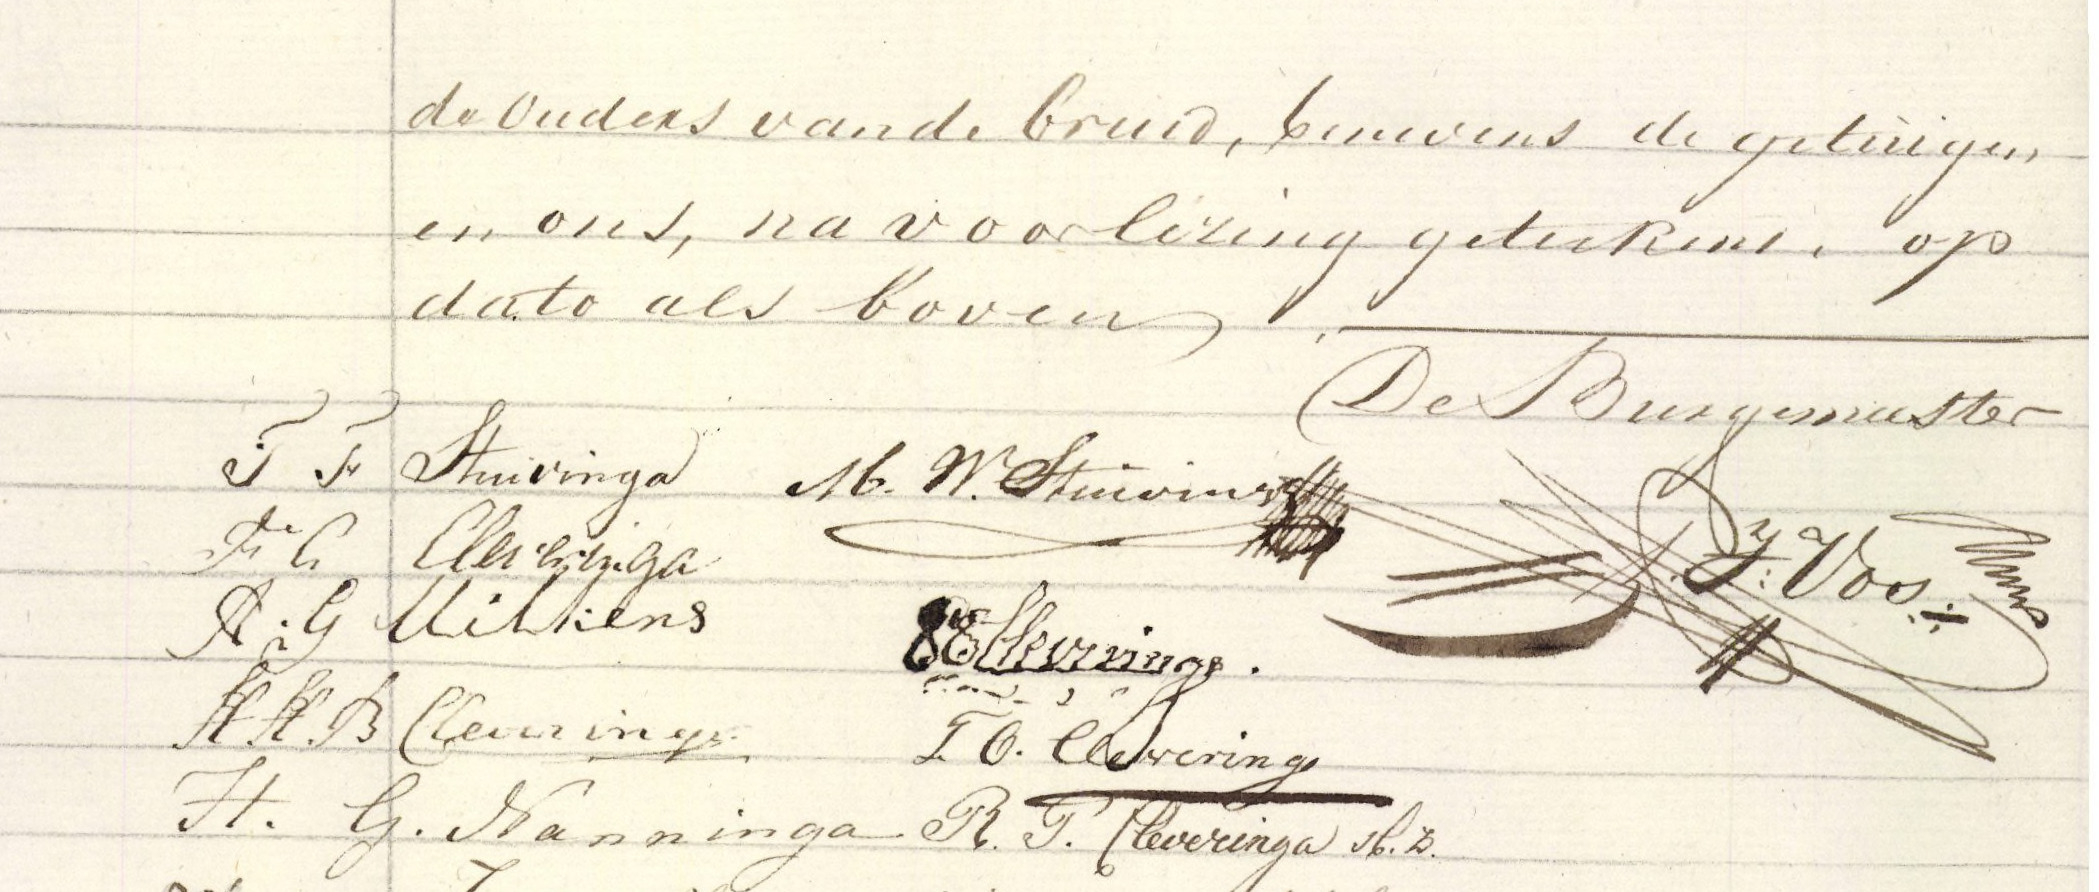 de Ouders van de bruid, benevens de getuigen
en ons, na voorlezing getekend, op
dato als boven
De Burgemeester
T F Stuivinga M. W. Stuivinga
IJ: Vos.
F C Cleveringa
A. G Wilkens
Cleveringa.
H. H. B Cleveringa
T. O. Clevering
H. G. Nanninga R. P. Cleveringa M. z.